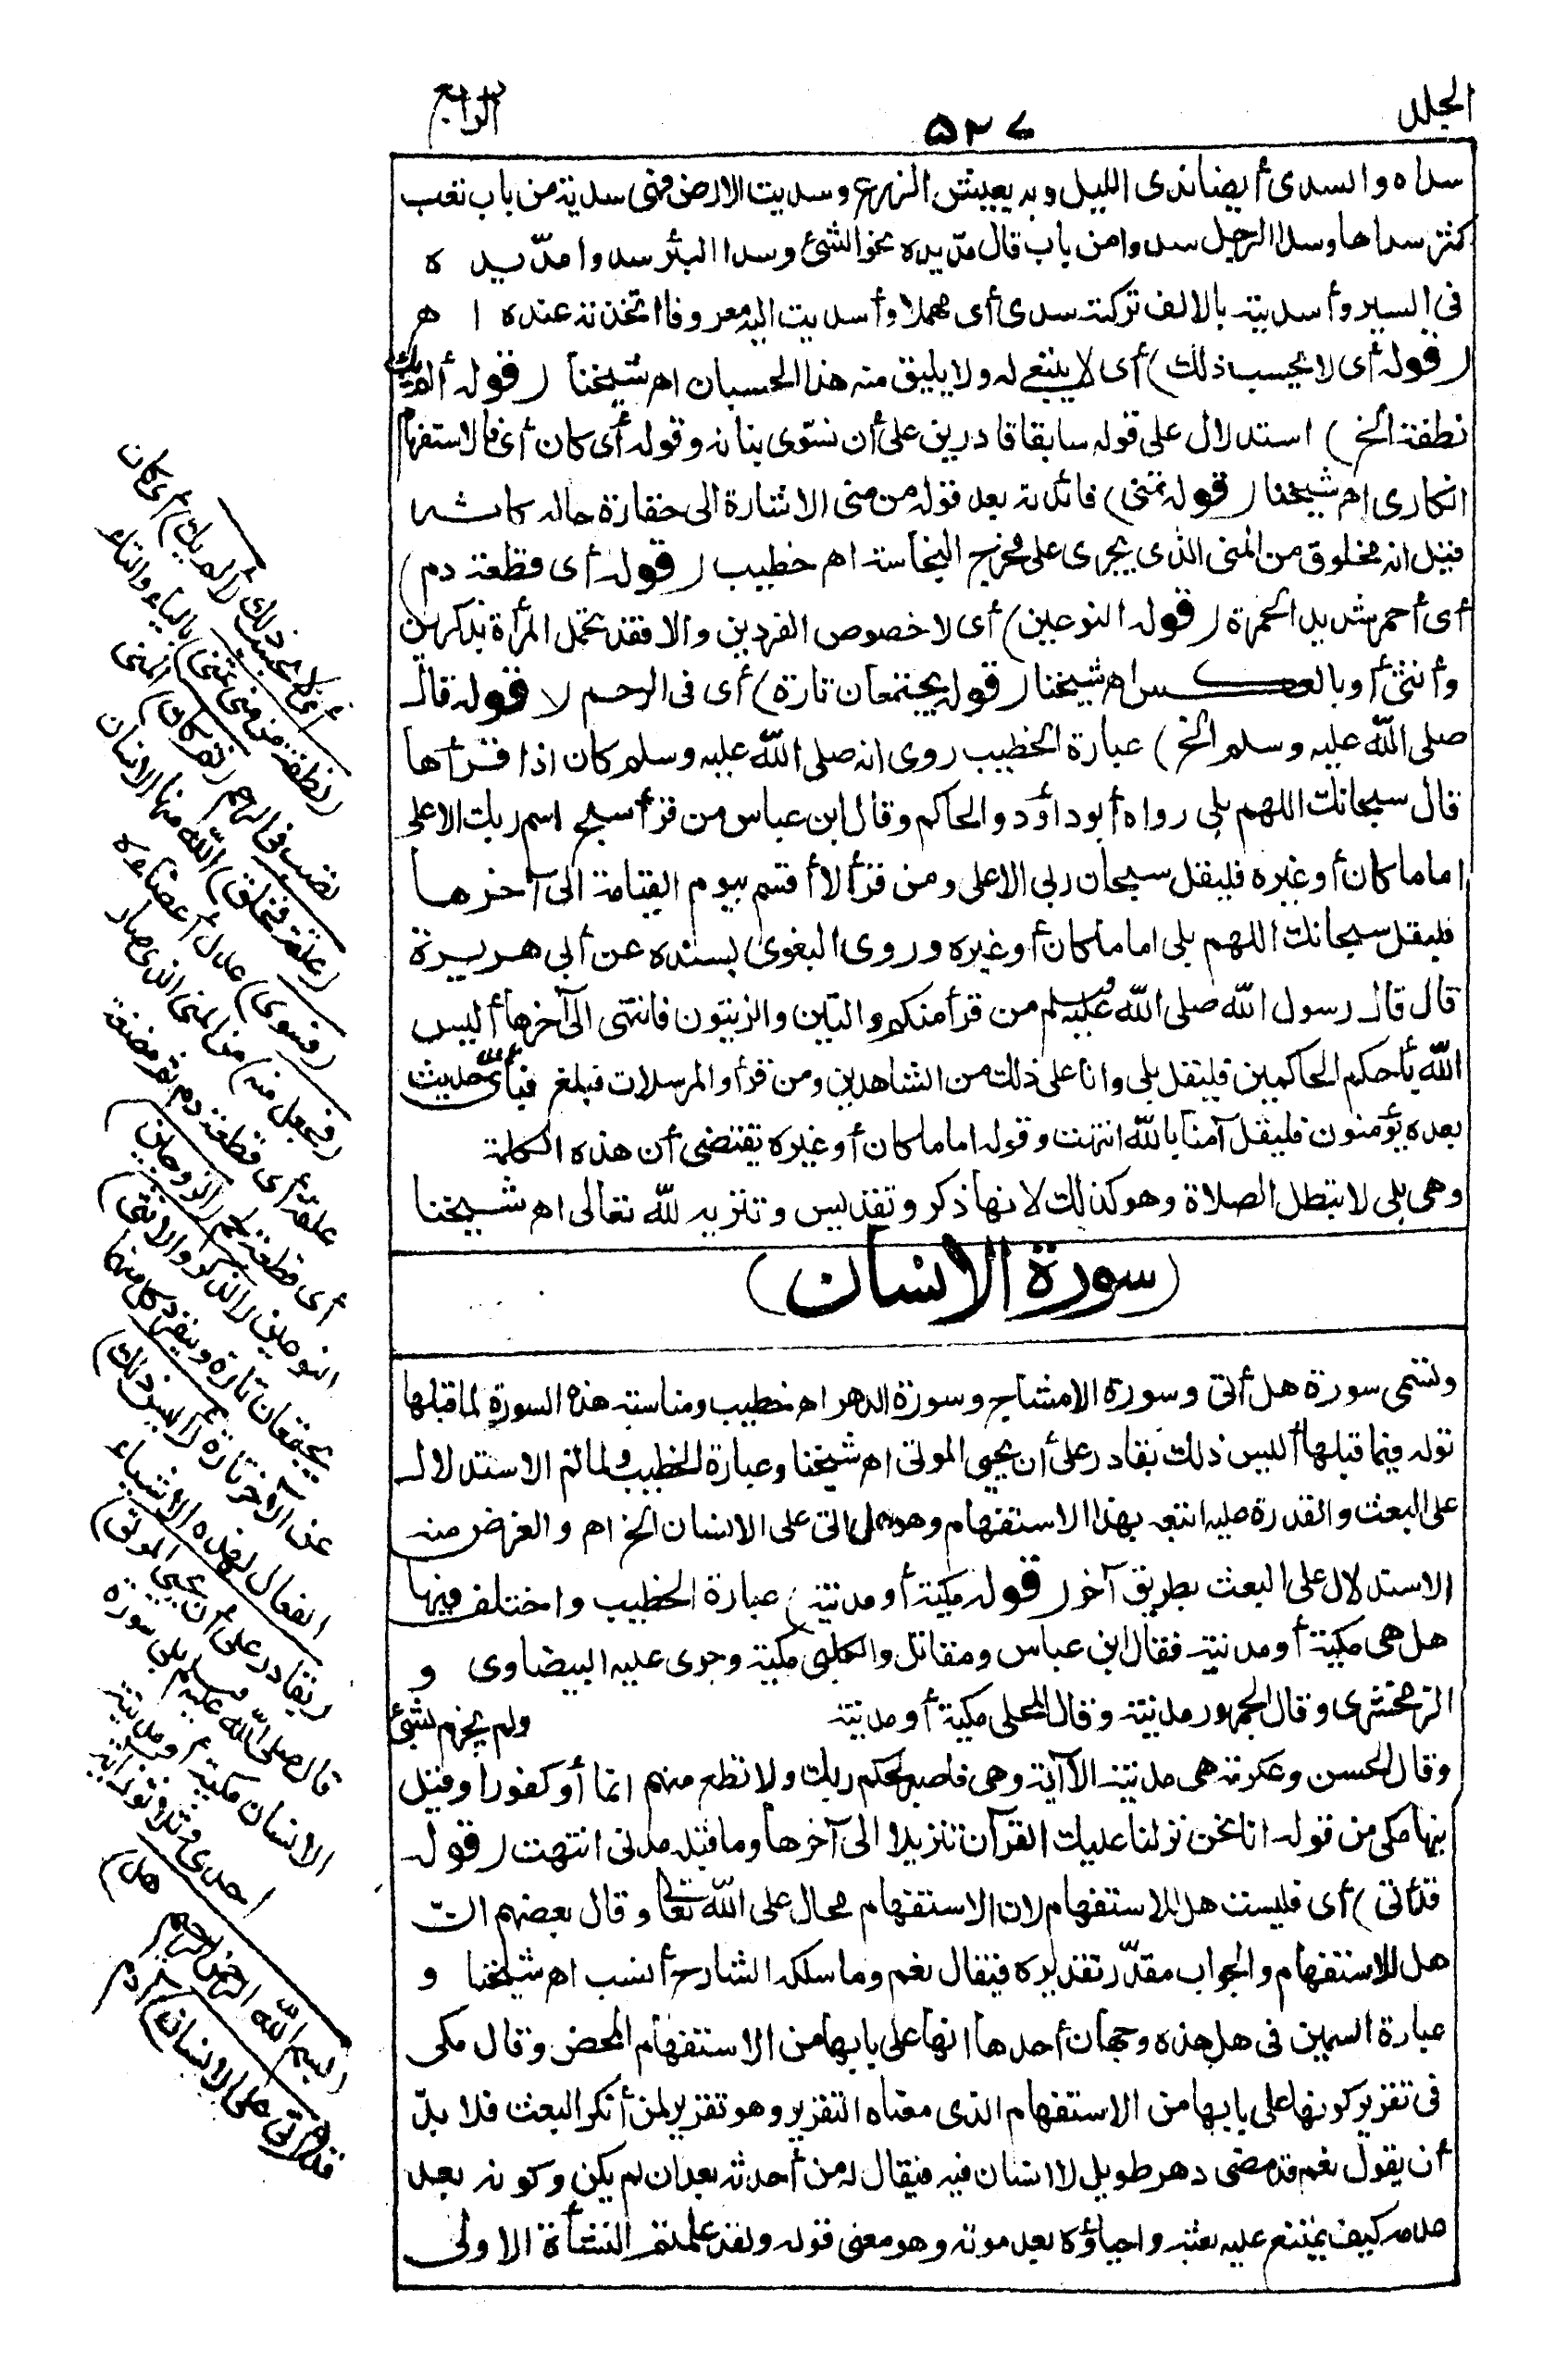 المجلد
٥٢٧
الرابع
سداه والسدى أيضا ندى الليل وبه يعيش الزرع وسديت الارض فهى سدية من باب تعب
كثر سداها وسدا الرجل سدوا من باب قال مدّ يده نحو الشئ وسدا البئر سدوا مدّ يده
فى السير وأسديته بالالف تركته سدى أى مهملا وأسديت اليه معروفا اتخذته عنده اه
(قوله أى لا يحسب ذلك) أى لا ينبغى له ولا يليق منه هذا الحسبان اه شيخنا (قوله ألم يك
نطفة الخ) استدلال على قوله سابقا قادرين على أن نسوّى بنانه وقوله أى كان أى فالاستفهام
انكارى اه شيخنا (قوله تمنى) فائدته بعد قوله من منى الاشارة الى حقارة حاله كانه
قيل انه مخلوق من المنى الذى يجرى على مخرج النجاسة اه خطيب (قوله أى قطعة دم)
أى أحمر شديد الحمرة (قوله النوعين) أى لا خصوص الفردين والا فقد تحمل المرأة بذكرين
وأنثى أو بالعكس اه شيخنا (قوله يجتمعان تارة) أى فى الرحم (قوله قال
صلى الله عليه وسلم الخ) عبارة الخطيب روى انه صلى الله عليه وسلم كان اذا قرأها
قال سبحانك اللهم بلى رواه أبو داود والحاكم وقال ابن عباس من قرأ سبح اسم ربك الاعلى
اماما كان أو غيره فليقل سبحان ربى الاعلى ومن قرأ لا أقسم بيوم القيامة الى آخرها
فليقل سبحانك اللهم بلى اماما كان أو غيره وروى البغوى بسنده عن أبى هريرة
قال قال رسول الله صلى الله عليه وسلم من قرأ منكم والتين والزيتون فانتهى الى آخرها أليس
الله بأحكم الحاكمين فليقل بلى وانا على ذلك من الشاهدين ومن قرأ والمرسلات فبلغ فبأى حديث
بعده يؤمنون فليقل آمنا بالله انتهت وقوله اماما كان أو غيره يقتضى أن هذه الكلمة
وهى بلى لا تبطل الصلاة وهو كذلك لانها ذكر وتقديس وتنزيه لله تعالى اه شيخنا
(سورة الانسان)
وتسمى سورة هل أتى وسورة الامشاج وسورة الدهر اه خطيب ومناسبة هذه السورة لما قبلها
قوله فيما قبلها أليس ذلك بقادر على أن يحيى الموتى اه شيخنا وعبارة الخطيب ولما تم الاستدلال
على البعث والقدرة عليه اتبعه بهذا الاستفهام وهو هل اتى على الانسان الخ اه والغرض منه
الاستدلال على البعث بطريق آخر (قوله مكية أو مدنية) عبارة الخطيب واختلف فيها
هل هى مكية أو مدنية فقال ابن عباس ومقاتل والكلبى مكية وجرى عليه البيضاوى و
الزمخشرى وقال الجمهور مدنية وقال المحلى مكية أو مدنية ولم يجزم بشئ
وقال الحسن وعكرمة هى مدنية الا آية وهى فاصبر لحكم ربك ولا تطع منهم اثما أو كفورا وقيل
فيها مكى من قوله انا نحن نزلنا عليك القرآن تنزيلا الى آخرها وما قبله مدنى انتهت (قوله
قد أتى) أى فليست هل للاستفهام لان الاستفهام محال على الله تعالى وقال بعضهم ان
هل للاستفهام والجواب مقدّر تقديره فيقال نعم وما سلكه الشارح أنسب اه شيخنا و
عبارة السمين فى هل هذه وجهان أحدها انها على بابها من الاستفهام المحض وقال مكى
فى تقرير كونها على بابها من الاستفهام الذى معناه التقرير وهو تقرير لمن أنكر البعث فلا بدّ
أن يقول نعم قد مضى دهر طويل لا انسان فيه فيقال له من أحدثه بعد ان لم يكن وكونه بعد
عدمه كيف يمتنع عليه بعثه واحياؤه بعد موته وهو معنى قوله ولقد علمتم النشأة الاولى
أى لا يحسب ذلك (ألم يك) أى كان
(نطفة من منى تمنى) بالياء والتاء
تصب فى الرحم (ثم كان) المنى
(علقة فخلق) الله منها الانسان
(فسوى) عدل أعضاءه
(فجعل منه) من المنى الذى صار
علقة أى قطعة دم ثم مضغة
أى قطعة لحم (الزوجين)
النوعين (الذكر والانثى)
يجتمعان تارة وينفرد كل منهما
عن الآخر تارة (أليس ذلك)
الفعال لهذه الاشياء
(بقادر على أن يحيى الموتى)
قال صلى الله عليه وسلم بلى سورة
الانسان مكية أو مدنية
احدى وثلاثون آية
(بسم الله الرحمن الرحيم هل)
قد (أتى على الانسان) آدم